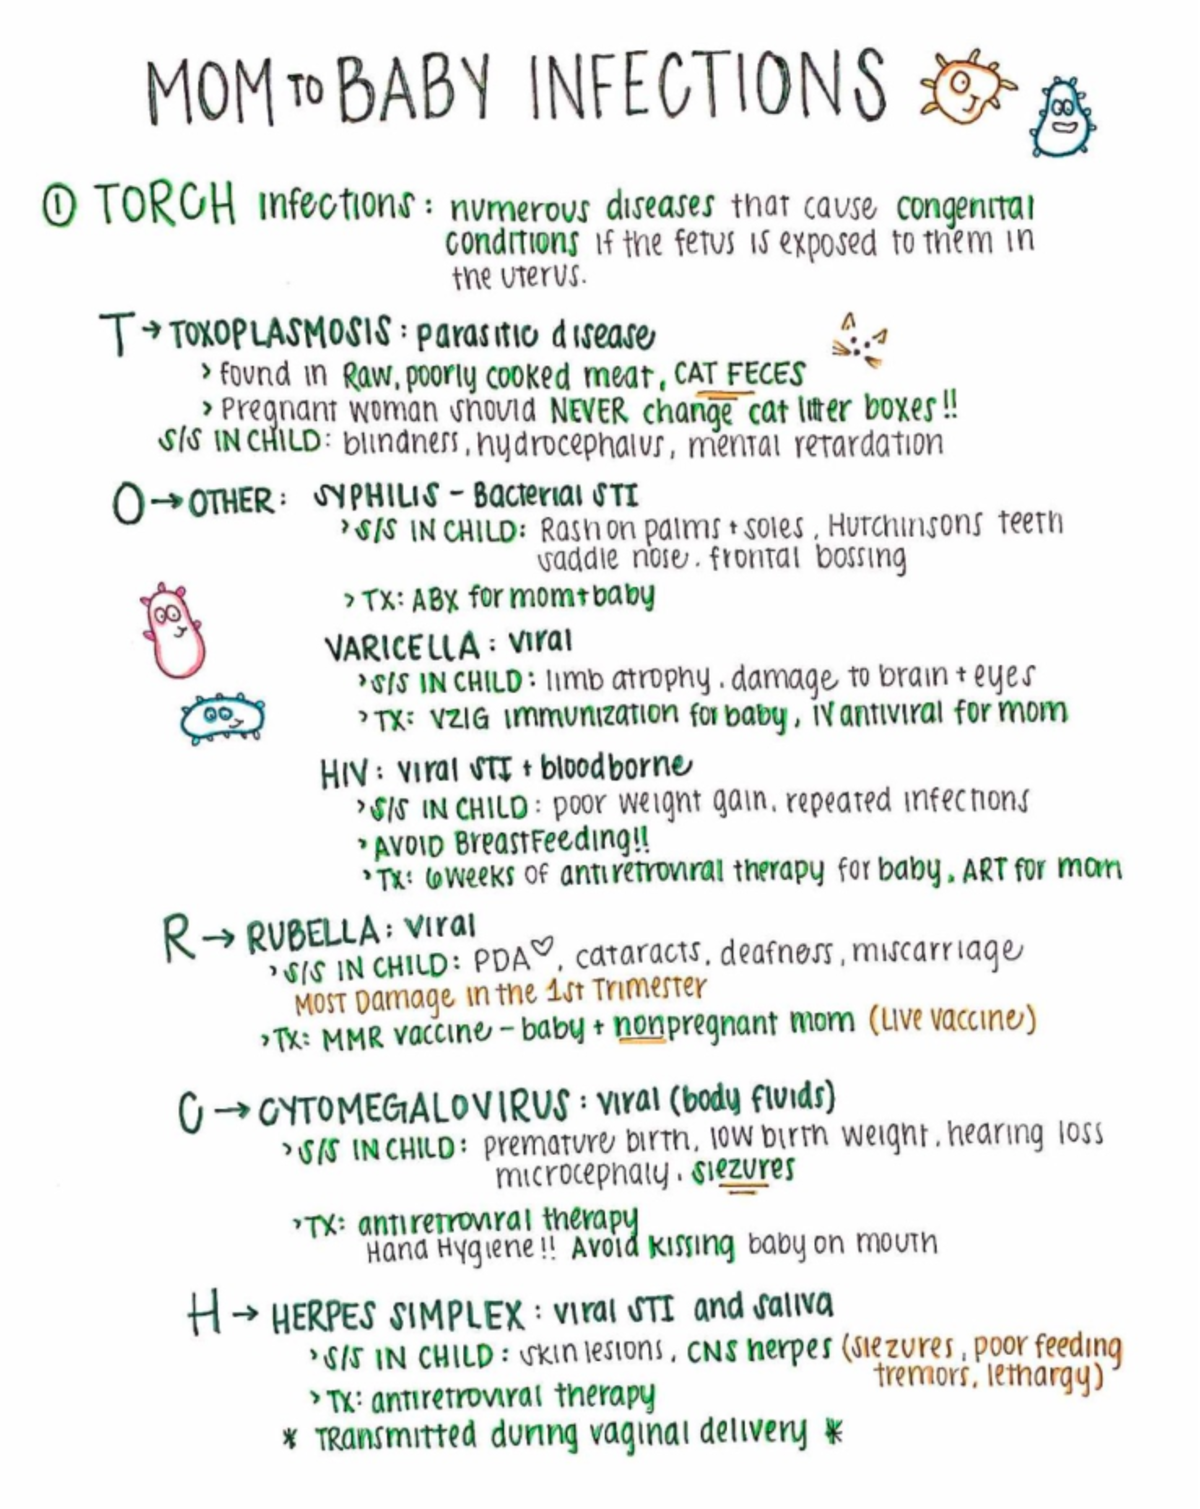 MOM TO BABY INFECTIONS
① TORCH infections: numerous diseases that cause congenital
conditions if the fetus is exposed to them in
the uterus.
T → TOXOPLASMOSIS: parasitic disease
> found in Raw, poorly cooked meat, CAT FECES
> Pregnant woman should NEVER change cat litter boxes!!
S/S IN CHILD: blindness, hydrocephalus, mental retardation
O → OTHER: SYPHILIS - Bacterial STI
> S/S IN CHILD: Rash on palms + soles, Hutchinsons teeth
saddle nose, frontal bossing
> TX: ABX for mom + baby
VARICELLA: viral
> S/S IN CHILD: limb atrophy, damage to brain + eyes
> TX: VZIG immunization for baby, IV antiviral for mom
HIV: viral STI + bloodborne
> S/S IN CHILD: poor weight gain, repeated infections
> AVOID BreastFeeding!!
> TX: 6 weeks of antiretroviral therapy for baby, ART for mom
R → RUBELLA: viral
> S/S IN CHILD: PDA♡, cataracts, deafness, miscarriage
MOST Damage in the 1st Trimester
> TX: MMR vaccine - baby + nonpregnant mom (Live vaccine)
C → CYTOMEGALOVIRUS: viral (body fluids)
> S/S IN CHILD: premature birth, low birth weight, hearing loss
microcephaly, siezures
> TX: antiretroviral therapy
Hand Hygiene!! Avoid kissing baby on mouth
H → HERPES SIMPLEX: viral STI and saliva
> S/S IN CHILD: skin lesions, CNS herpes (siezures, poor feeding
tremors, lethargy)
> TX: antiretroviral therapy
* TRansmitted during vaginal delivery *